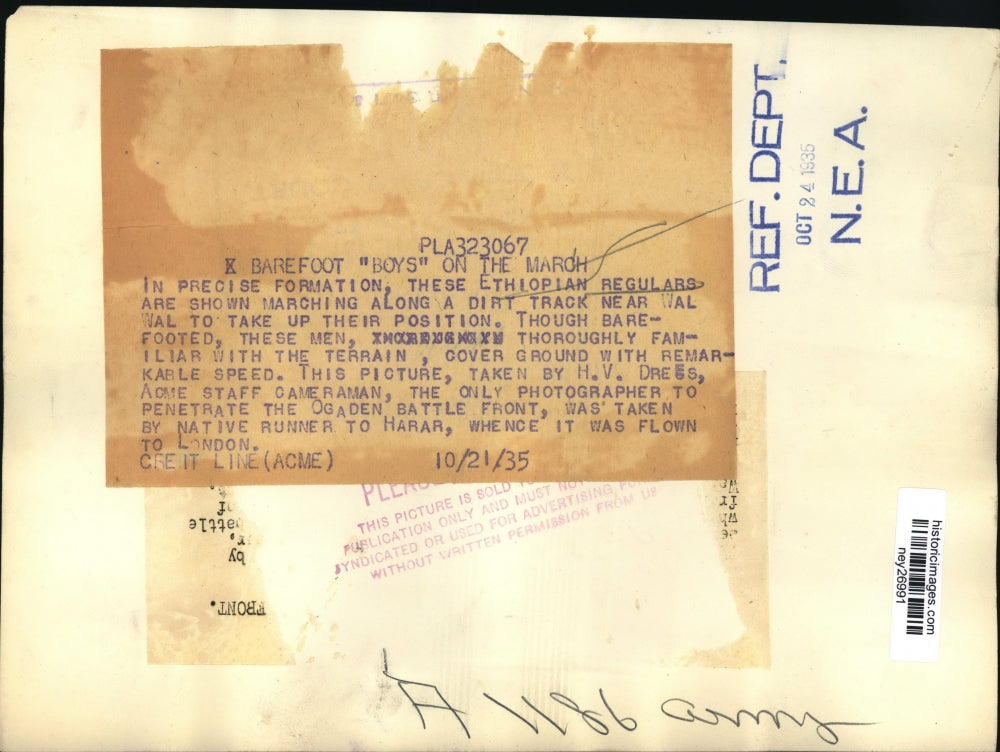 PLA323067
X BAREFOOT "BOYS" ON THE MARCH
IN PRECISE FORMATION, THESE ETHIOPIAN REGULARS
ARE SHOWN MARCHING ALONG A DIRT TRACK NEAR WAL
WAL TO TAKE UP THEIR POSITION. THOUGH BARE-
FOOTED, THESE MEN, THOROUGHLY FAM-
ILIAR WITH THE TERRAIN , COVER GROUND WITH REMAR-
KABLE SPEED. THIS PICTURE, TAKEN BY H.V. DREES,
ACME STAFF CAMERAMAN, THE ONLY PHOTOGRAPHER TO
PENETRATE THE OGADEN BATTLE FRONT, WAS TAKEN
BY NATIVE RUNNER TO HARAR, WHENCE IT WAS FLOWN
TO LONDON.
CREDIT LINE(ACME) 10/21/35
REF. DEPT.
OCT 24 1935
N.E.A.
THIS PICTURE IS SOLD
PUBLICATION ONLY AND MUST NOT
SYNDICATED OR USED FOR ADVERTISING
WITHOUT WRITTEN PERMISSION FROM US
by
FRONT.
historicimages.com
ney26991
army